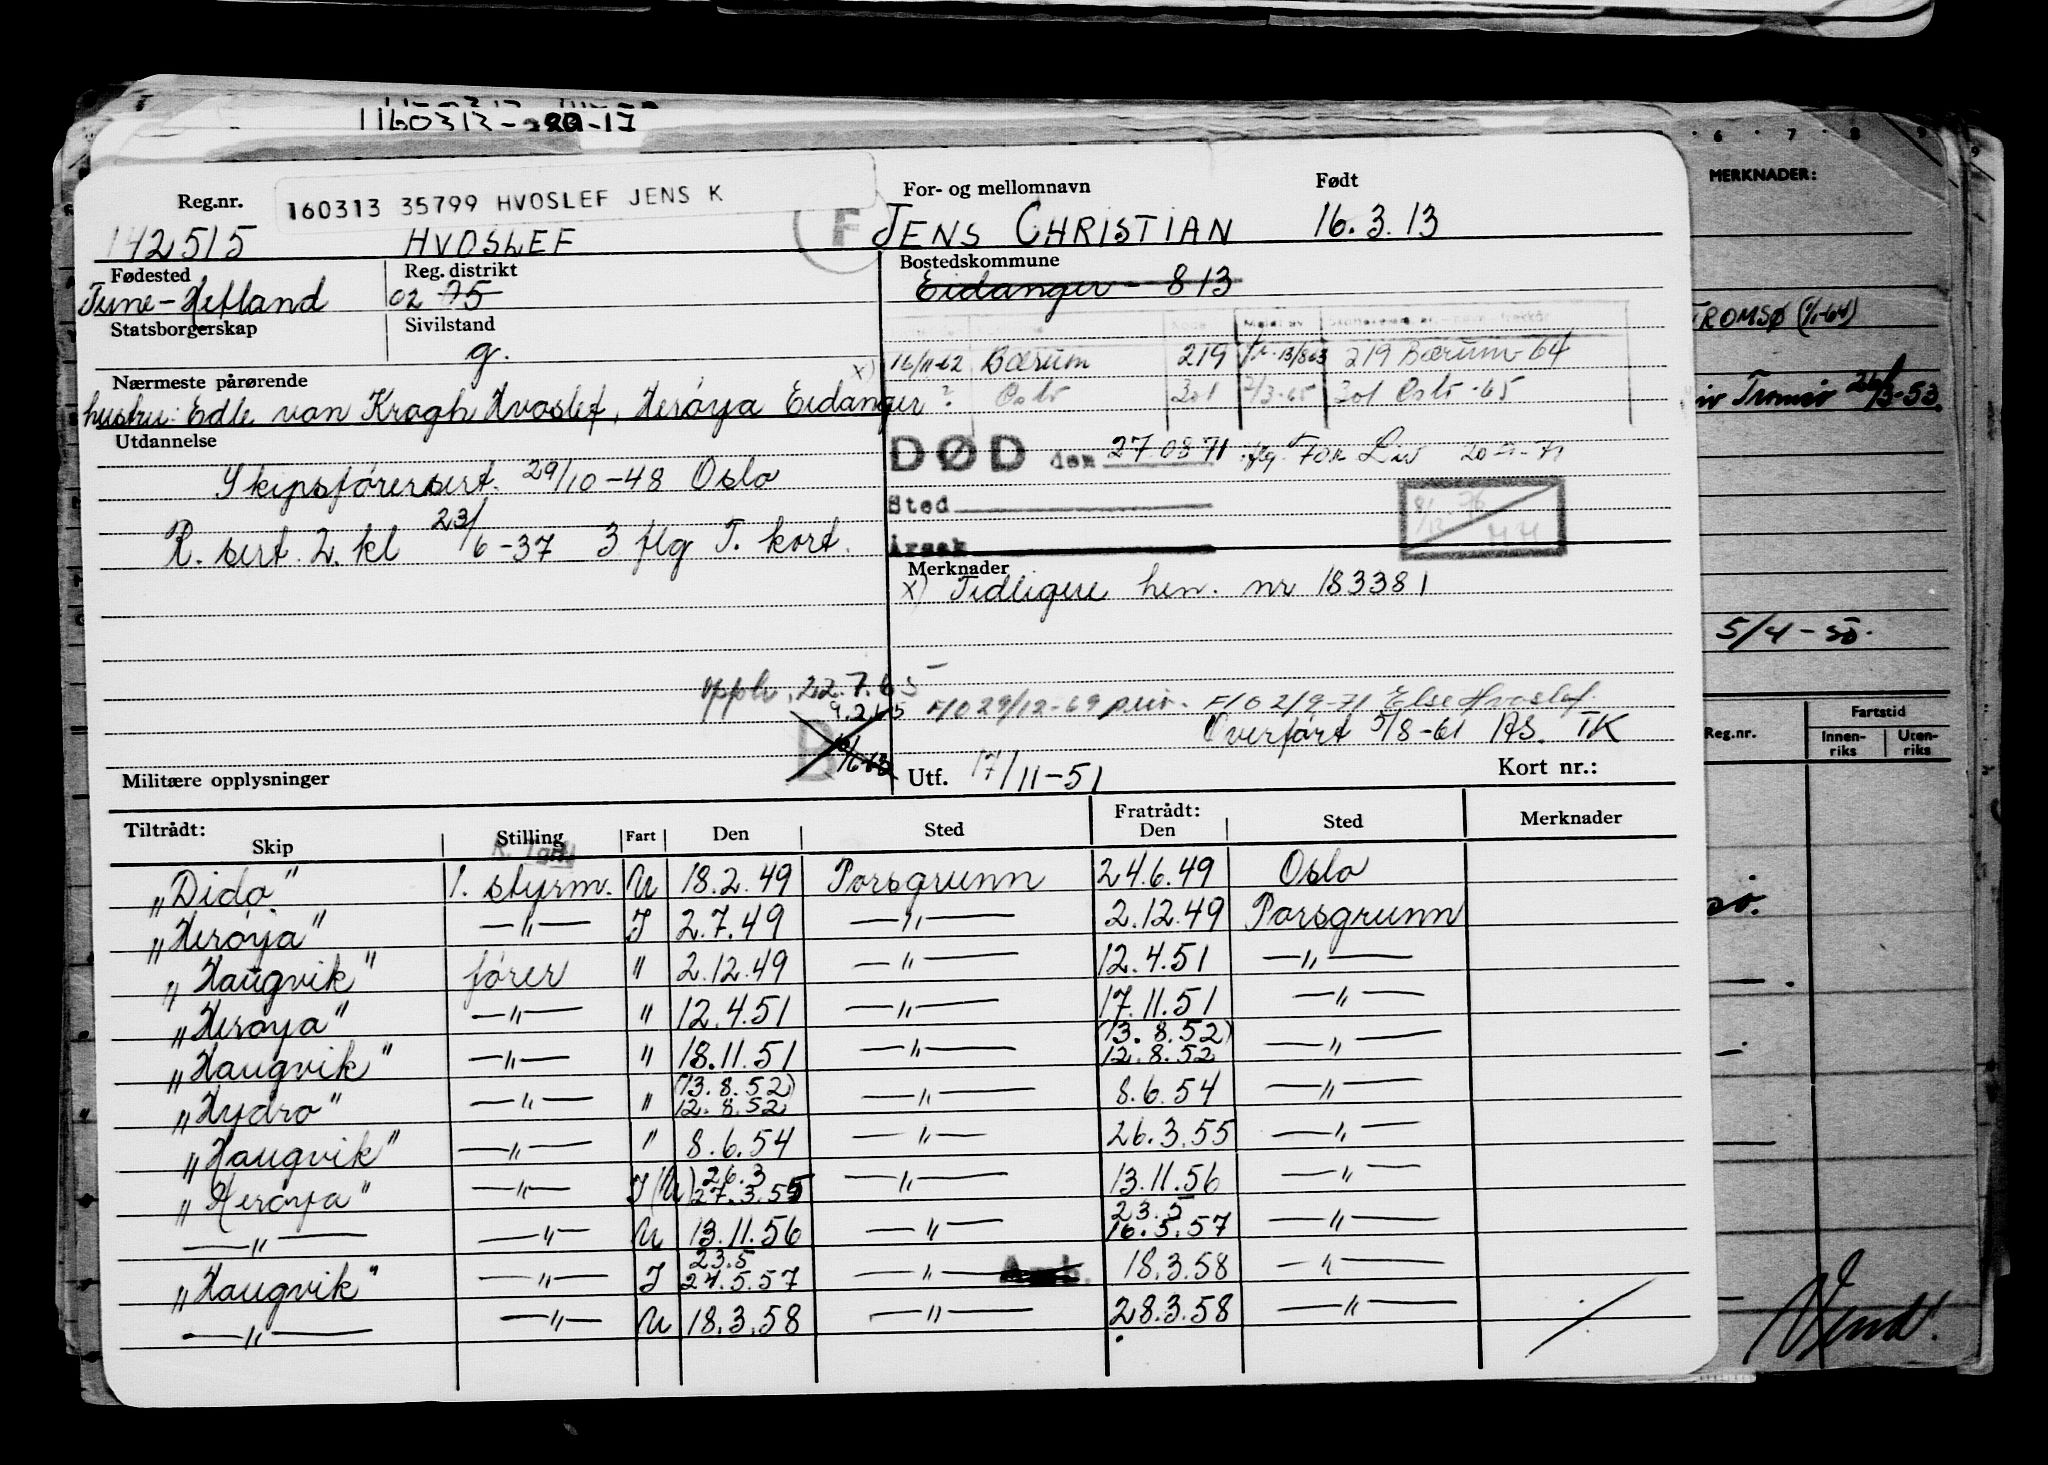 1160313-
Reg.nr. 160313 35799 HVOSLEF JENS K
For- og mellomnavn Født
142515 HVOSLEF F JENS CHRISTIAN 16.3.13
Fødested Reg. distrikt Bostedskommune
Tune- 02 05 Eidanger - 813
Statsborgerskap Sivilstand
g.
16/11-62 Bærum 219 13/8 63 219 Bærum-64
? Oslo 301 7/3-65 301 Oslo-65
Nærmeste pårørende x)
hustru: Edle von Krogh Hvoslef, Herøya Eidanger
Utdannelse
DØD den 27 08 71
Skipsførersert. 29/10-48 Oslo
Sted
R. sert. 2. kl 23/6-37 3 flg T. kort.
Årsak
Merknader
x) Tidligere hen. nr 183381
22.7.65
9.2.65 F/O 29/12-69 priv. F/O 2/9-71 Else Hvoslef
Overført 5/8-61 AS. TK
B
Militære opplysninger Utf. 17/11-51 Kort nr.:
Tiltrådt: Fratrådt:
Skip Stilling Fart Den Sted Den Sted Merknader
"Dido" 1. styrm. U 18.2.49 Porsgrunn 24.6.49 Oslo
"Herøya" —"— I 2.7.49 —"— 2.12.49 Porsgrunn
"Haugvik" fører " 2.12.49 —"— 12.4.51 —"—
"Herøya" —"— " 12.4.51 —"— 17.11.51 —"—
"Haugvik" —"— " 18.11.51 —"— (13.8.52) 12.8.52 —"—
"Hydro" —"— " (13.8.52) 12.8.52 —"— 8.6.54 —"—
"Haugvik" —"— " 8.6.54 —"— 26.3.55 —"—
"Herøya" —"— I (U) 26.3 27.3.55 —"— 13.11.56 —"—
—"— —"— U 13.11.56 —"— 23.5 16.5.57 —"—
"Haugvik" —"— I 23.5 24.5.57 —"— 18.3.58 —"—
—"— —"— U 18.3.58 —"— 28.3.58 —"—
6 7 8 9
MERKNADER:
TROMSØ
Tromsø 26/3-53.
5/4-50.
Reg.nr. Fartstid
Innen-riks Uten-riks
Vend!